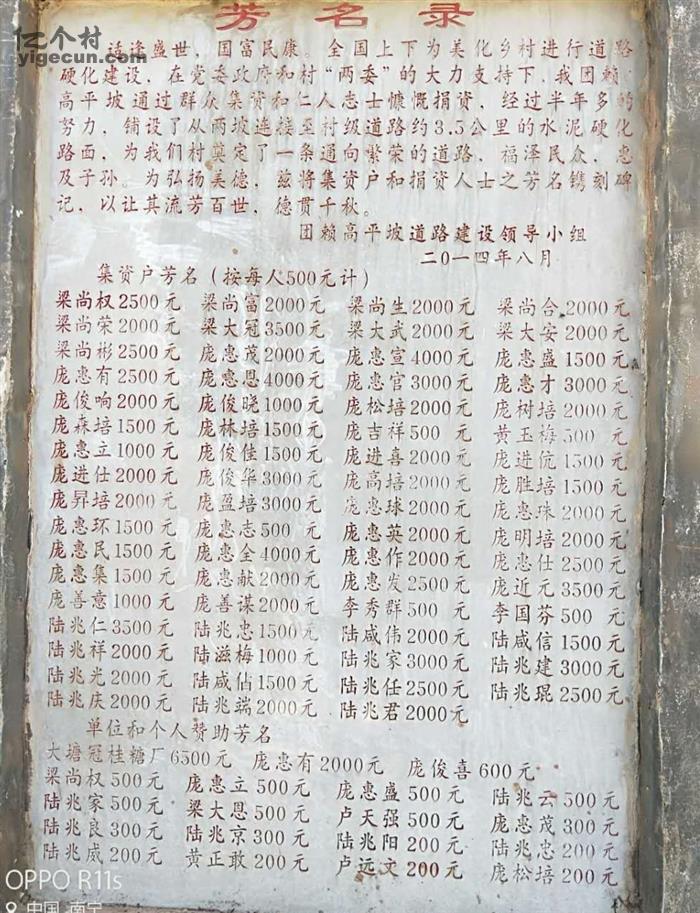 芳名录
亿个村
yigecun.com
适逢盛世，国富民康。全国上下为美化乡村进行道路
硬化建设，在党委政府和村“两委”的大力支持下，我团赖
高平坡通过群众集资和仁人志士慷慨捐资，经过半年多的
努力，铺设了从两坡连接至村级道路约3.5公里的水泥硬化
路面，为我们村奠定了一条通向繁荣的道路，福泽民众，惠
及子孙。为弘扬美德，兹将集资户和捐资人士之芳名镌刻碑
记，以让其流芳百世，德贯千秋。
团赖高平坡道路建设领导小组
二0一四年八月
集资户芳名（按每人500元计）
梁尚权2500元 梁尚富2000元 梁尚生2000元 梁尚合2000元
梁尚荣2000元 梁大冠3500元 梁大武2000元 梁大安2000元
梁尚彬2500元 庞惠茂2000元 庞惠宣4000元 庞惠盛1500元
庞惠有2500元 庞惠恩4000元 庞惠官3000元 庞惠才3000元
庞俊响2000元 庞俊晓1000元 庞松培2000元 庞树培2000元
庞森培1500元 庞林培1500元 庞吉祥500元 黄玉梅500元
庞惠立1000元 庞俊佳1500元 庞进喜2000元 庞进伉1500元
庞进仕2000元 庞俊华3000元 庞高培2000元 庞胜培1500元
庞昇培2000元 庞盈培3000元 庞惠球2000元 庞惠珠2000元
庞惠环1500元 庞惠志500元 庞惠英2000元 庞明培2000元
庞惠民1500元 庞惠全4000元 庞惠作2000元 庞惠仕2500元
庞惠集1500元 庞惠献2000元 庞惠发2500元 庞近元3500元
庞善意1000元 庞善谋2000元 李秀群500元 李国芬500元
陆兆仁3500元 陆兆忠1500元 陆咸伟2000元 陆咸信1500元
陆兆祥2000元 陆滋梅1000元 陆兆家3000元 陆兆建3000元
陆兆光2000元 陆咸佔1500元 陆兆任2500元 陆兆琨2500元
陆兆庆2000元 陆兆端2000元 陆兆君2000元
单位和个人赞助芳名
大塘冠桂糖厂6500元 庞惠有2000元 庞俊喜600元
梁尚权500元 庞惠立500元 庞惠盛500元 陆兆云500元
陆兆家500元 梁大恩500元 卢天强500元 庞惠茂300元
陆兆良300元 陆兆京300元 陆兆阳200元 陆兆忠200元
陆兆威200元 黄正敢200元 卢远文200元 庞松培200元
OPPO R11s
中国·南宁